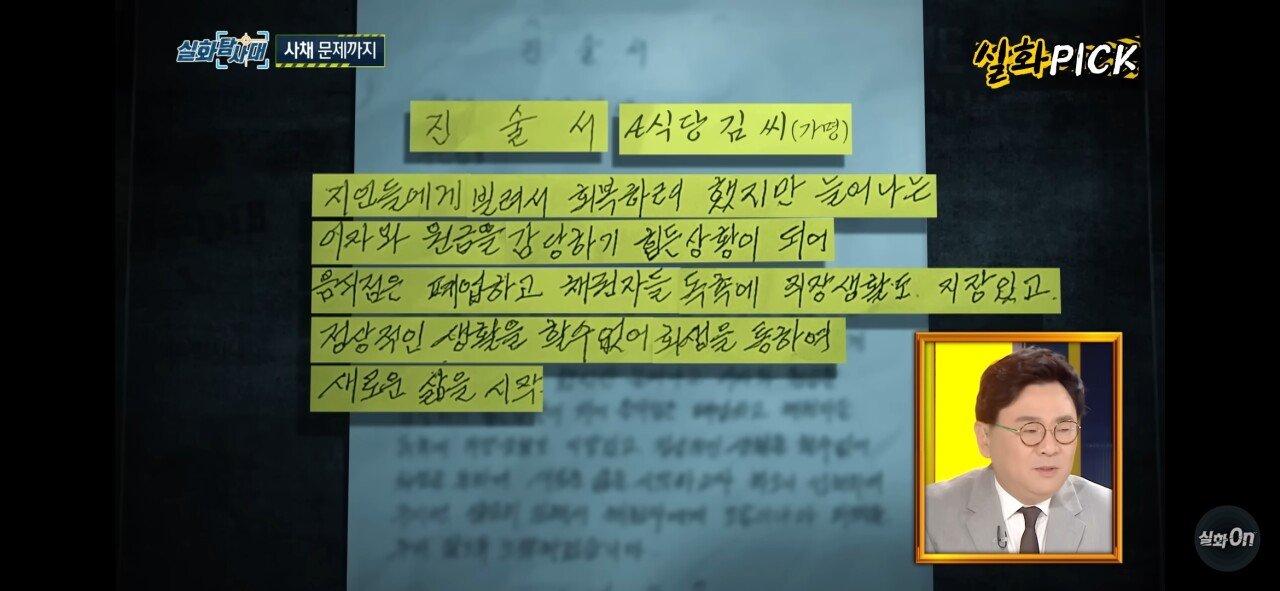 실화탐사대 사채 문제까지
실화PICK
진 술 서 A식당 김 씨(가평)
지인들에게 빌려서 회복하려 했지만 늘어나는
이자와 원금을 감당하기 힘든상황이 되어
음식점은 폐업하고 채권자들 독촉에 직장생활도 지장있고.
정상적인 생활을 할수없어 회생을 통하여
새로운 삶을 시작.
실화On